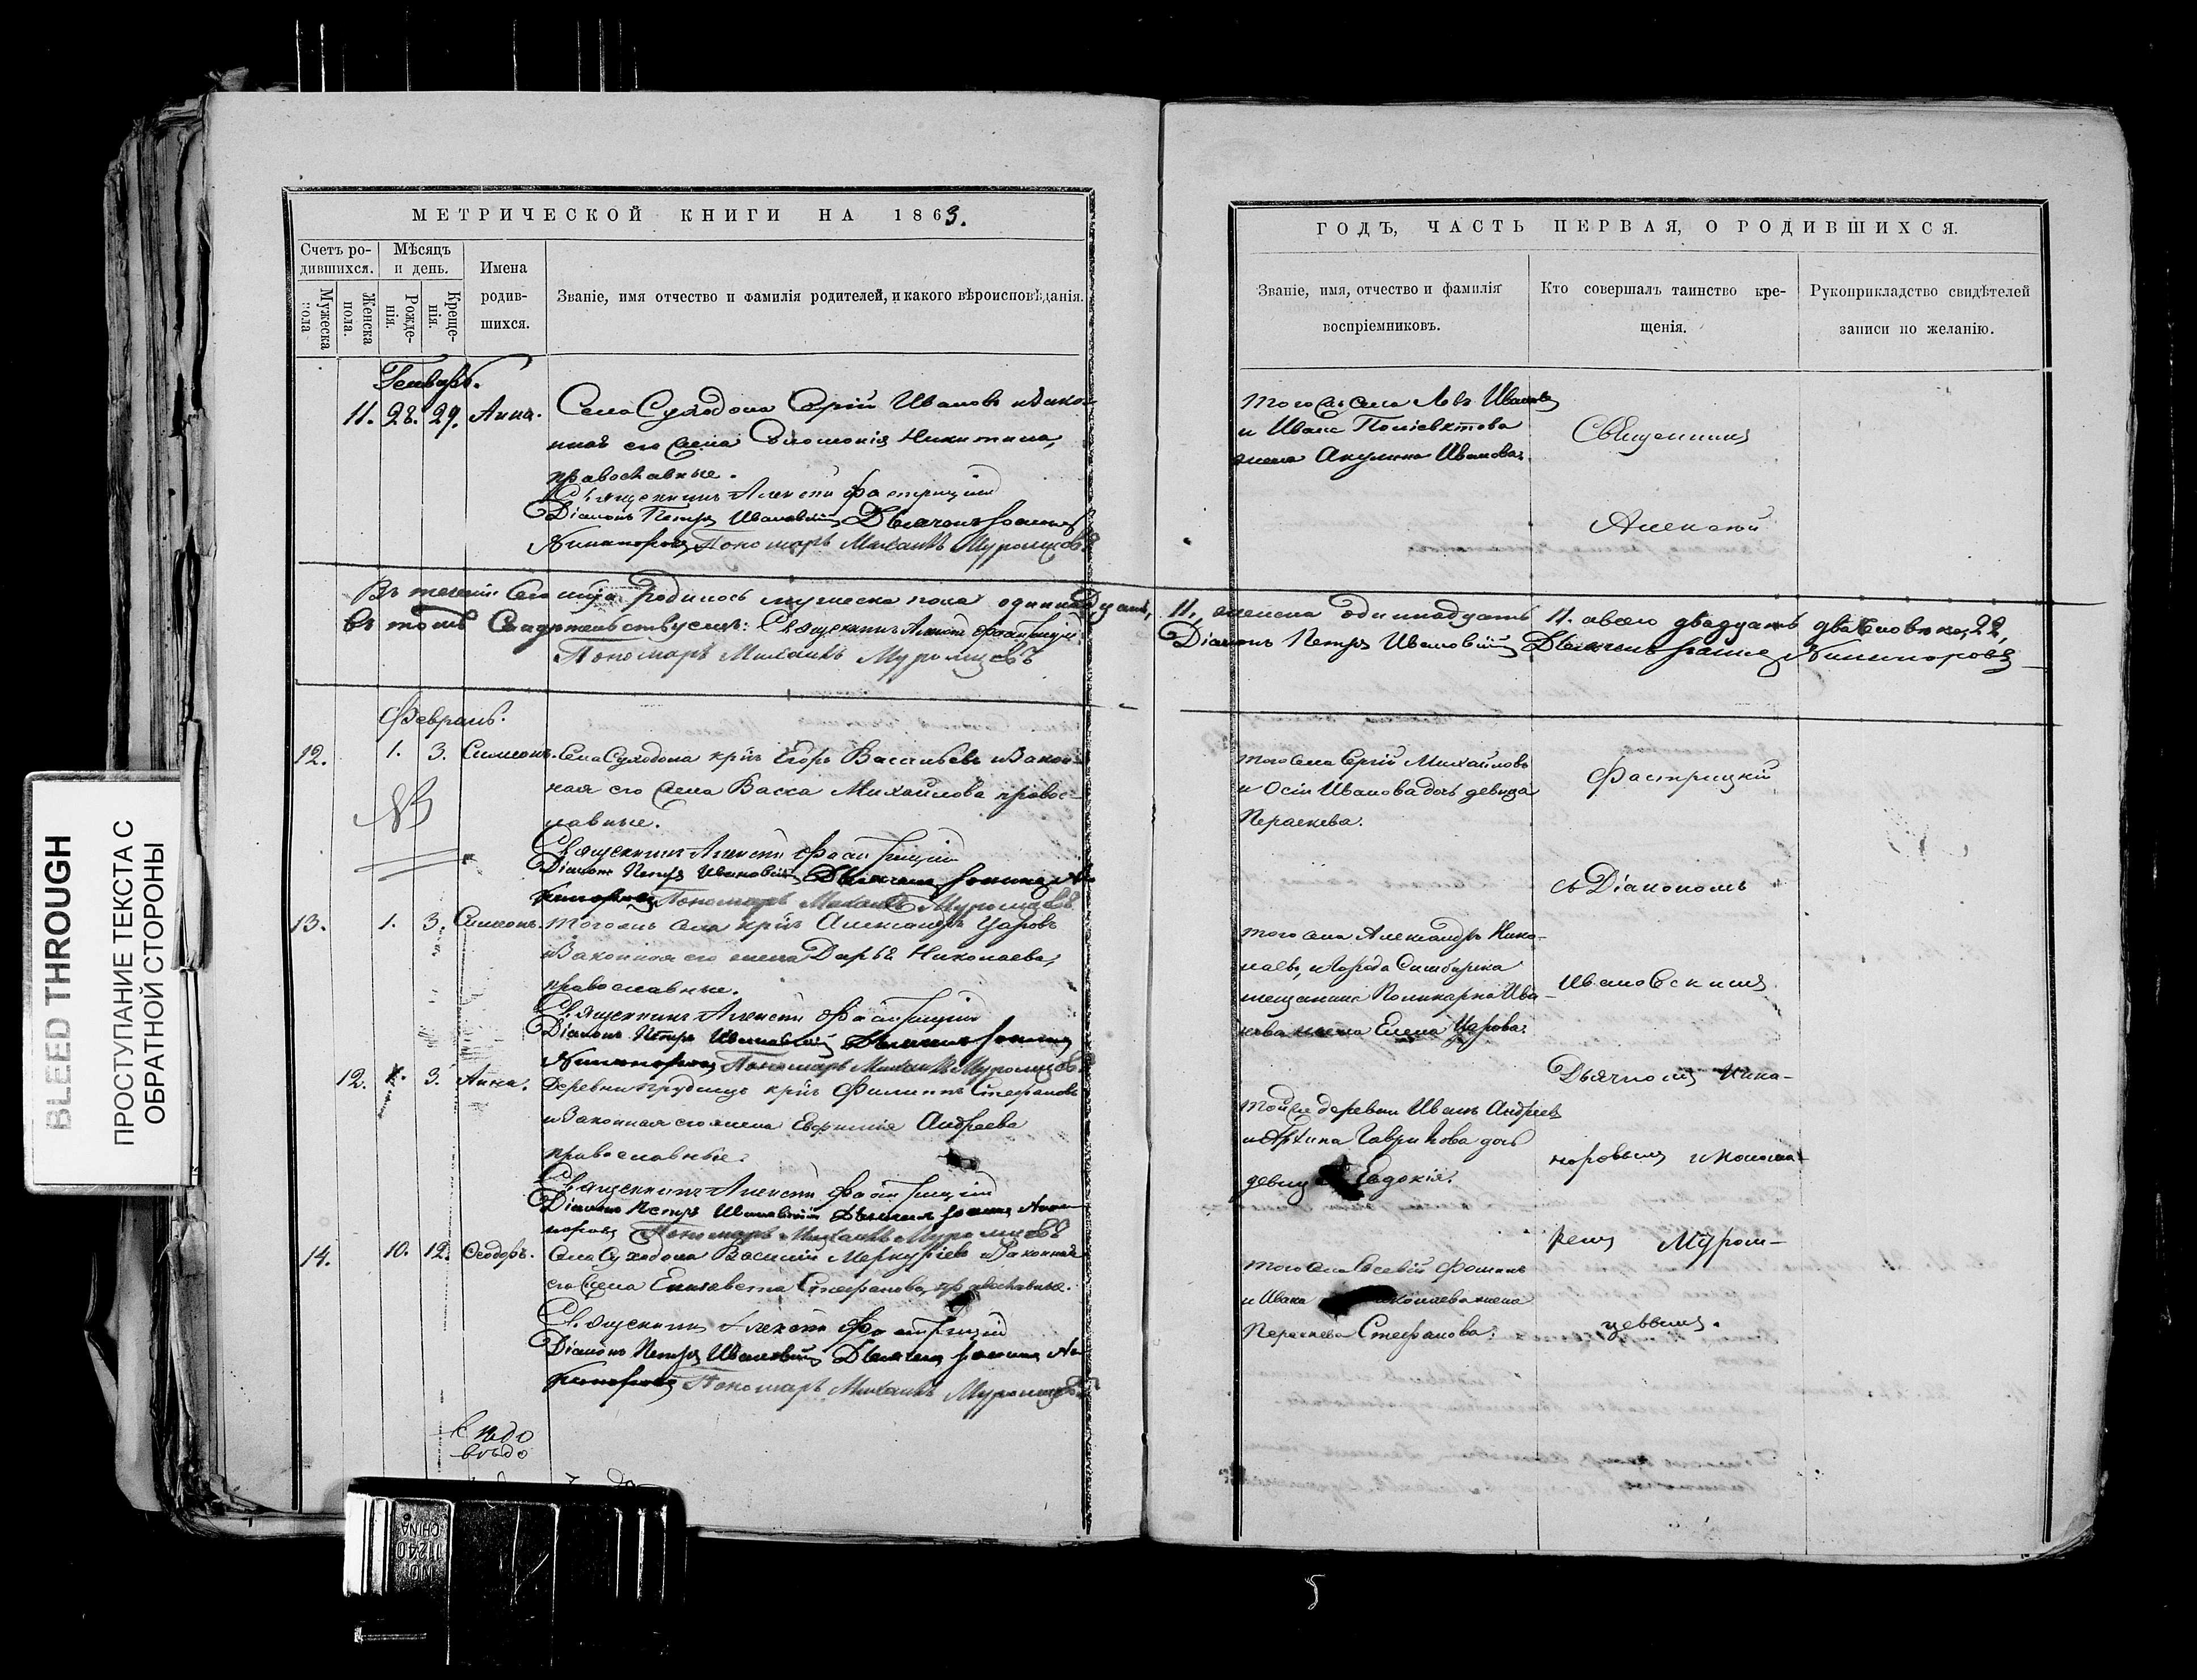 МЕТРИЧЕСКОЙ КНИГИ НА 1863.
Счетъ ро-
дившихся.
Мѣсяцъ
и день.
Имена
родив-
шихся.
Званіе, имя отчество и фамилія родителей, и какого вѣроисповѣданія.
Мужеска
пола
Женска
пола.
Рожде-
нія.
Креще-
нія.
Генварь.
11. 28. 29. Анна. Села Суходола Сергій Ивановъ и закон-
ная его жена Никитина,
православные.
Священникъ Алексѣй Фастрицкій
Діаконъ Петръ Ивановскій Дьячекъ Іоаннъ
Никаноровъ Пономарь Михаилъ Муромцовъ
Въ теченіи сего мѣсяца родилось мужеска пола одиннадцать,
въ томъ свидѣтельствуемъ: Священникъ Алексѣй Фастрицкій
Пономарь Михаилъ Муромцовъ
Февраль.
12. 1. 3. Симеонъ. Села Суходола кр‍інъ Егоръ Васильевъ и закон-
ная его жена Васса Михайлова правос-
лавные.
NB
Священникъ Алексѣй Фастрицкій
Діаконъ Петръ Ивановскій Дьячекъ Іоаннъ Ни-
каноровъ Пономарь Михаилъ Муромцовъ
13. 1. 3. Симеонъ. Того же села Александръ Царовъ
и законная его жена Дарья Николаева,
православные.
Священникъ Алексѣй Фастрицкій
Діаконъ Петръ Ивановскій Дьячекъ Іоаннъ
Никаноровъ Пономарь Михаилъ Муромцовъ
12. 3. Анна. Деревни Прудищъ Филиппъ Стефановъ
и законная его жена Евфимія Андреева
православные.
Священникъ Алексѣй Фастрицкій
Діаконъ Петръ Ивановскій Дьячекъ Іоаннъ Ника-
норовъ Пономарь Михаилъ Муромцовъ
14. 10. 12. Ѳеодоръ. Села Суходола Василій Меркурьевъ и законная
его жена Елизавета Стефанова, православные.
Священникъ Алексѣй Фастрицкій
Діаконъ Петръ Ивановскій Дьячекъ Іоаннъ Ни-
каноровъ Пономарь Михаилъ Муромцовъ
ГОДЪ, ЧАСТЬ ПЕРВАЯ, О РОДИВШИХСЯ.
Званіе, имя, отчество и фамилія
воспріемниковъ.
Кто совершалъ таинство кре-
щенія.
Рукоприкладство свидѣтелей
записи по желанію.
Того же села Левъ Ивановъ
и Ивана Поліевктова
жена Акулина Иванова.
Священникъ
Алексѣй
11, женска одиннадцать 11. а всего двадцать два человѣка, 22,
Діаконъ Петръ Ивановскій Дьячекъ Іоаннъ Никаноровъ
того села Сергій Михайловъ
и Осіи Иванова дочь девица
Параскева.
Фастрицкій
съ Діакономъ
того села Александръ Нико-
лаевъ, и города Симбирска
мещанина Поликарпа Ива-
нова жена Елена Царова.
Ивановскимъ
Дьячкомъ Ника-
той же деревни Иванъ Андреевъ
и Гаврилова дочь
девица Евдокія.
норовымъ и Понома-
ремъ Муром-
того села Евсевій Фоминъ
и Ивана Николаева жена
Параскева Стефанова.
цевымъ.
BLEED THROUGH
ПРОСТУПАНИЕ ТЕКСТА С
ОБРАТНОЙ СТОРОНЫ
CHINA
11240
5